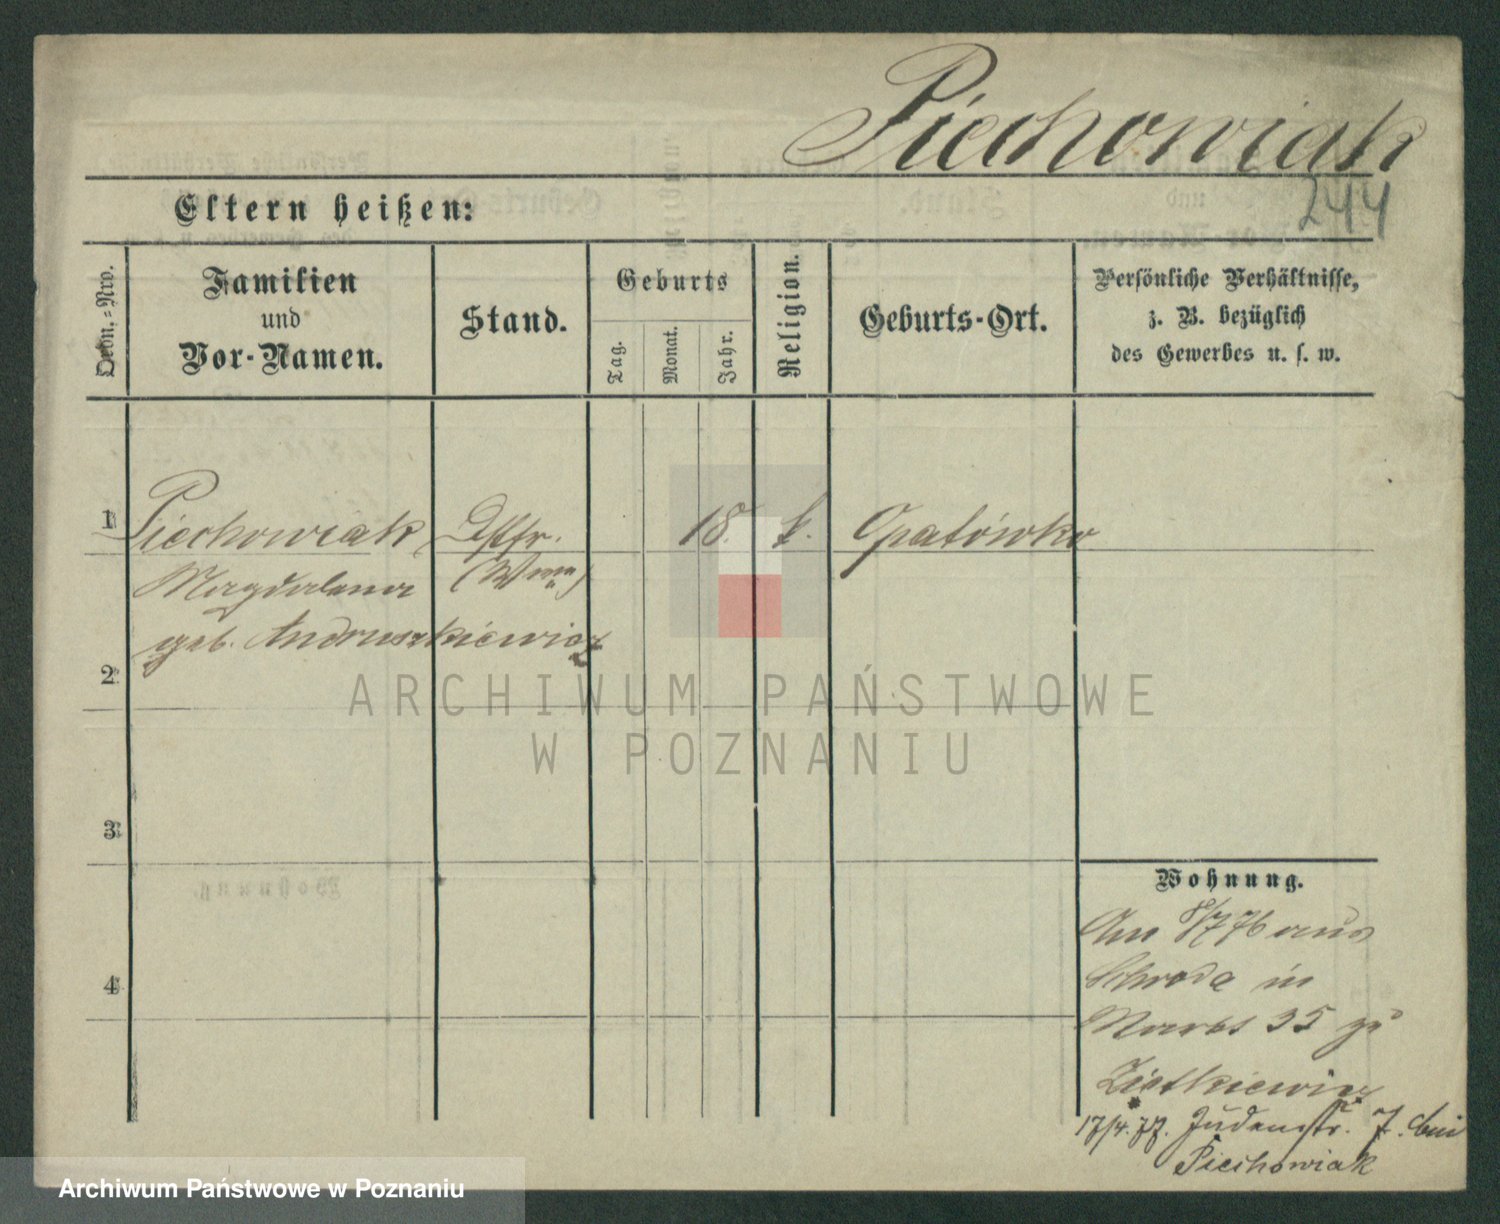 Piechowiak
244
Eltern heißen:
Ordn.-Nro.
Familien
und
Vor-Namen.
Stand.
Geburts
Tag.
Monat.
Jahr.
Religion.
Geburts-Ort.
Persönliche Verhältnisse,
z. B. bezüglich
des Gewerbes u. s. w.
1
Piechowiak
18. k. Opatówko
Magdalena
geb. Andruszkiewicz
2
3
4
Wohnung.
Am 8/7 76 aus
Schroda in
Markt 35 zu
17/4. 77. Judenstr. 7. bei
Piechowiak
ARCHIWUM PAŃSTWOWE
W POZNANIU
Archiwum Państwowe w Poznaniu